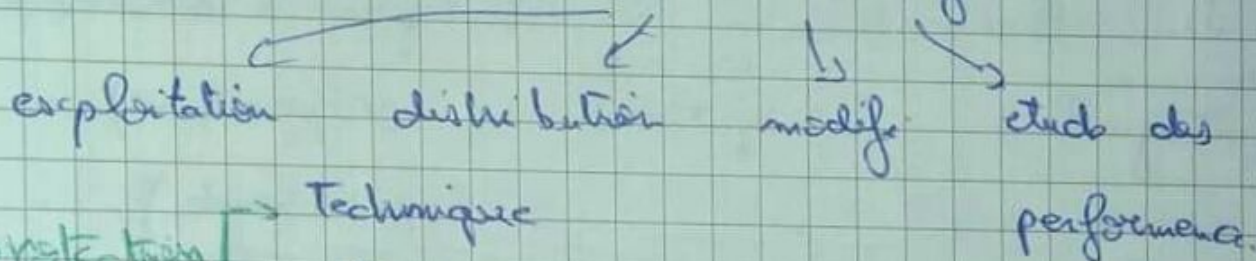 exploitation distribution modif etude des
→ Technique performence